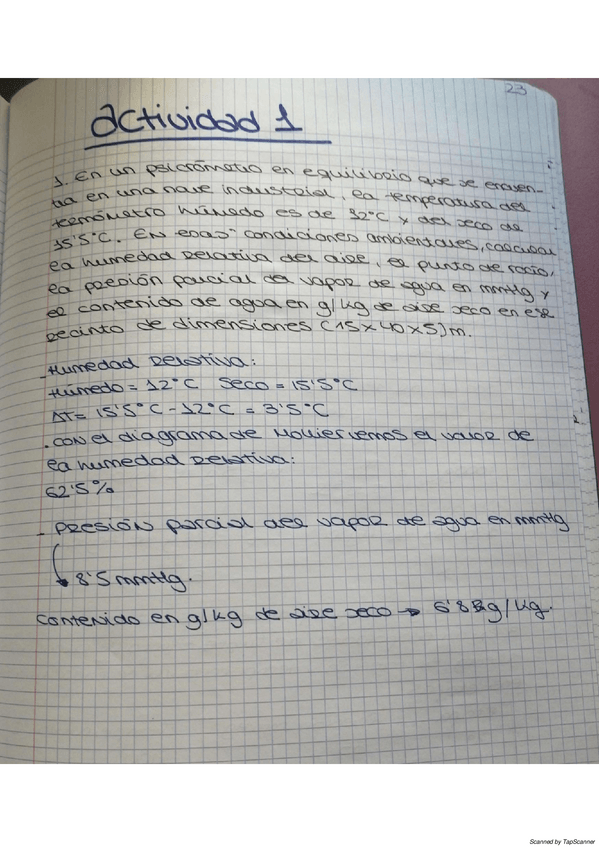 23
Actividad 1
1. En un psicrómatro en equilibrio que se encuen-
tra en una nave industrial, la temperatura del
termómetro húmedo es de 12°C y del seco de
15'5°C. En esas condiciones ambientales, calcular
la humedad relativa del aire, el punto de rocío,
la presión parcial del vapor de agua en mmHg y
el contenido de agua en g/kg de aire seco en ese
recinto de dimensiones (15x40x5)m.
- Humedad Relativa:
Húmedo = 12°C Seco = 15'5°C
ΔT = 15'5°C - 12°C = 3'5°C
. Con el diagrama de Mollier vemos el valor de
la humedad relativa:
62'5%
- Presión parcial del vapor de agua en mmHg
8'5 mmHg.
Contenido en g/kg de aire seco → 6'8 g/kg.
Scanned by TapScanner